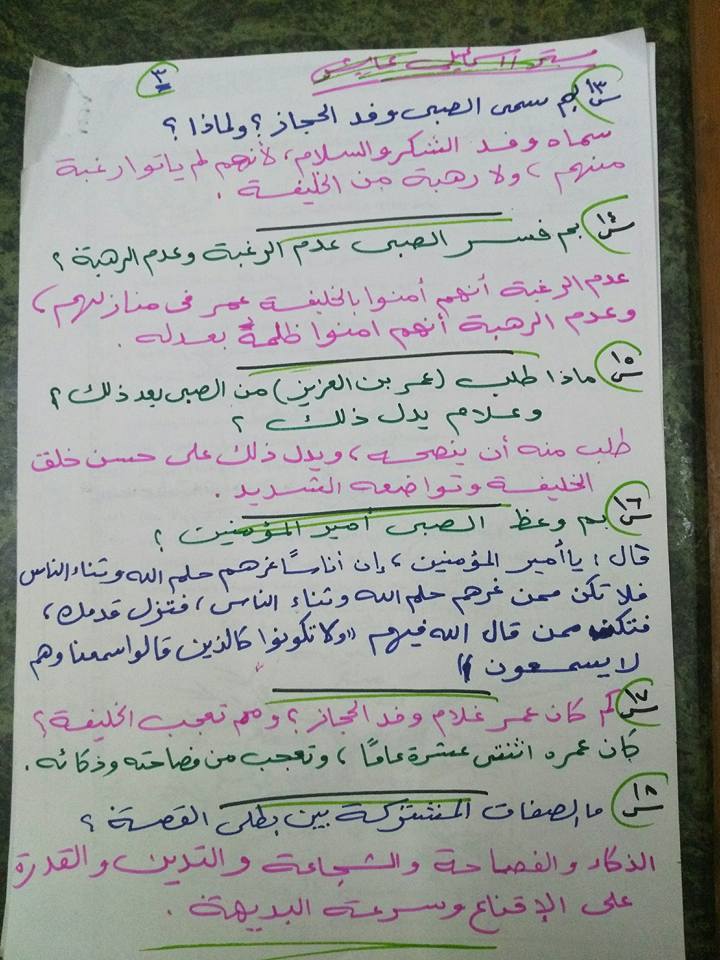 ٣
س١٣ بم سمى الصبى وفد الحجاز؟ ولماذا؟
سماه وفد الشكر والسلام، لأنهم لم ياتوا رغبة
منهم، ولا رهبة من الخليفة.
س١٤ بم فسر الصبى عدم الرغبة وعدم الرهبة؟
عدم الرغبة أنهم أمنوا بالخليفة عمر فى منازلهم،
وعدم الرهبة أنهم امنوا ظلمه بعدله.
س١٥ ماذا طلب (عمر بن العزيز) من الصبى بعد ذلك؟
وعلام يدل ذلك؟
طلب منه أن ينصحه، ويدل ذلك على حسن خلق
الخليفة وتواضعه الشديد.
س١٦ بم وعظ الصبى أمير المؤمنين؟
قال: يا أمير المؤمنين، إن أناسًا غرهم حلم الله وثناء الناس
فلا تكن ممن غرهم حلم الله وثناء الناس، فتزل قدمك،
فتكن ممن قال الله فيهم "ولا تكونوا كالذين قالوا سمعنا وهم
لا يسمعون"
س١٧ كم كان عمر غلام وفد الحجاز؟ ومم تعجب الخليفة؟
كان عمره اثنتى عشرة عامًا، وتعجب من فصاحته وذكائه.
س١٨ ما الصفات المشتركة بين بطلى القصة؟
الذكاء والفصاحة والشجاعة والتدين والقدرة
على الإقناع وسرعة البديهة.